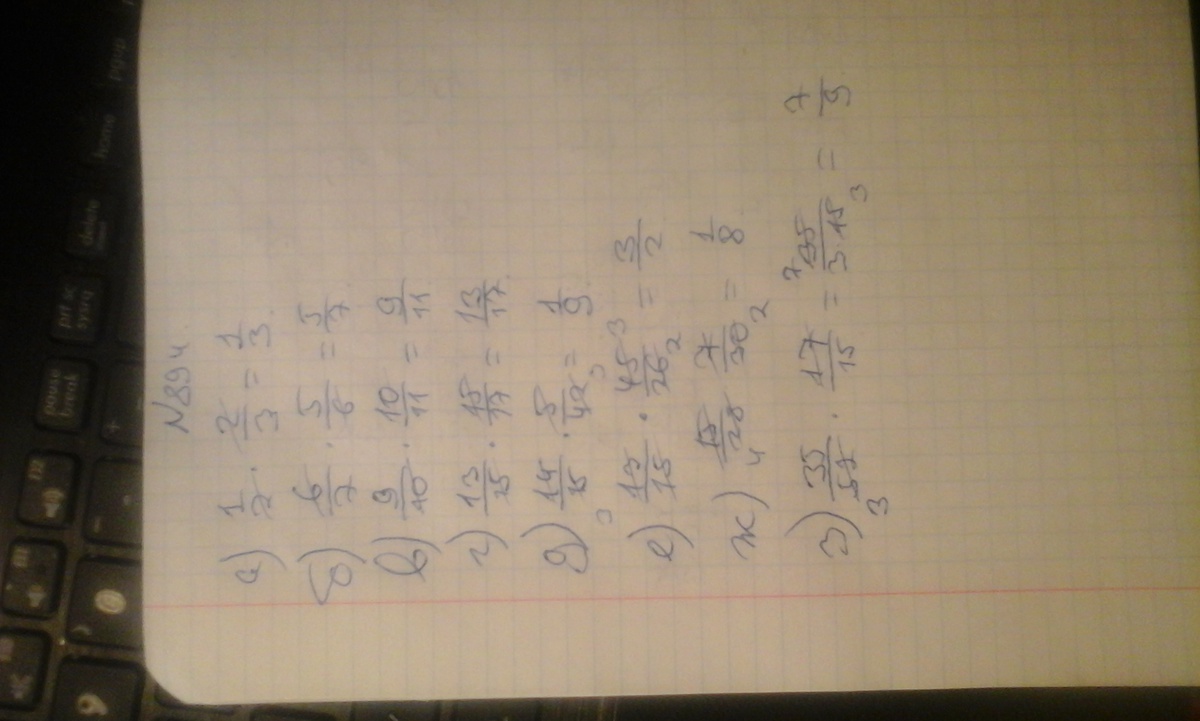 N 894
а) 1/2 · 2/3 = 1/3.
б) 6/7 · 5/6 = 5/7.
в) 9/10 · 10/11 = 9/11
г) 13/15 · 15/17 = 13/17.
д) 14/15 · 5/42 = 1/9.
е) 13/15 · 45/26 = 3/2
ж) 15/28 · 7/30 = 1/8.
з) 35/51 · 17/15 = 35/3·15 = 7/9.
pause break
prt sc sysrq
delete
home
pgup
f12
9